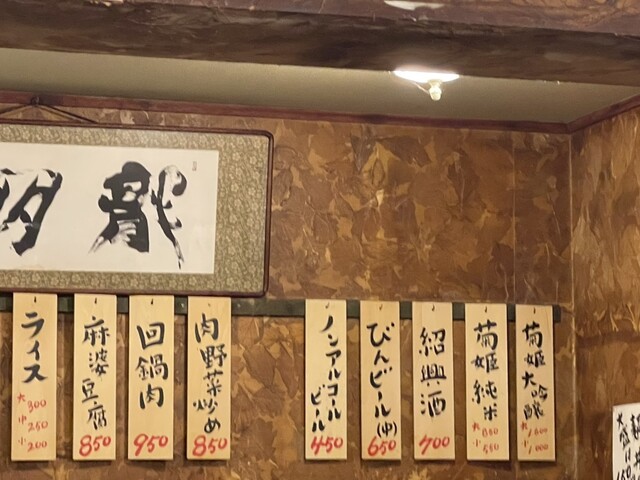 龍
菊姫 大吟醸
大 1600
小 1000
菊姫 純米
大 850
小 550
紹興酒
700
びんビール(中)
650
ノンアルコール
ビール
450
肉野菜炒め
850
回鍋肉
950
麻婆豆腐
850
ライス
大 300
中 250
小 200